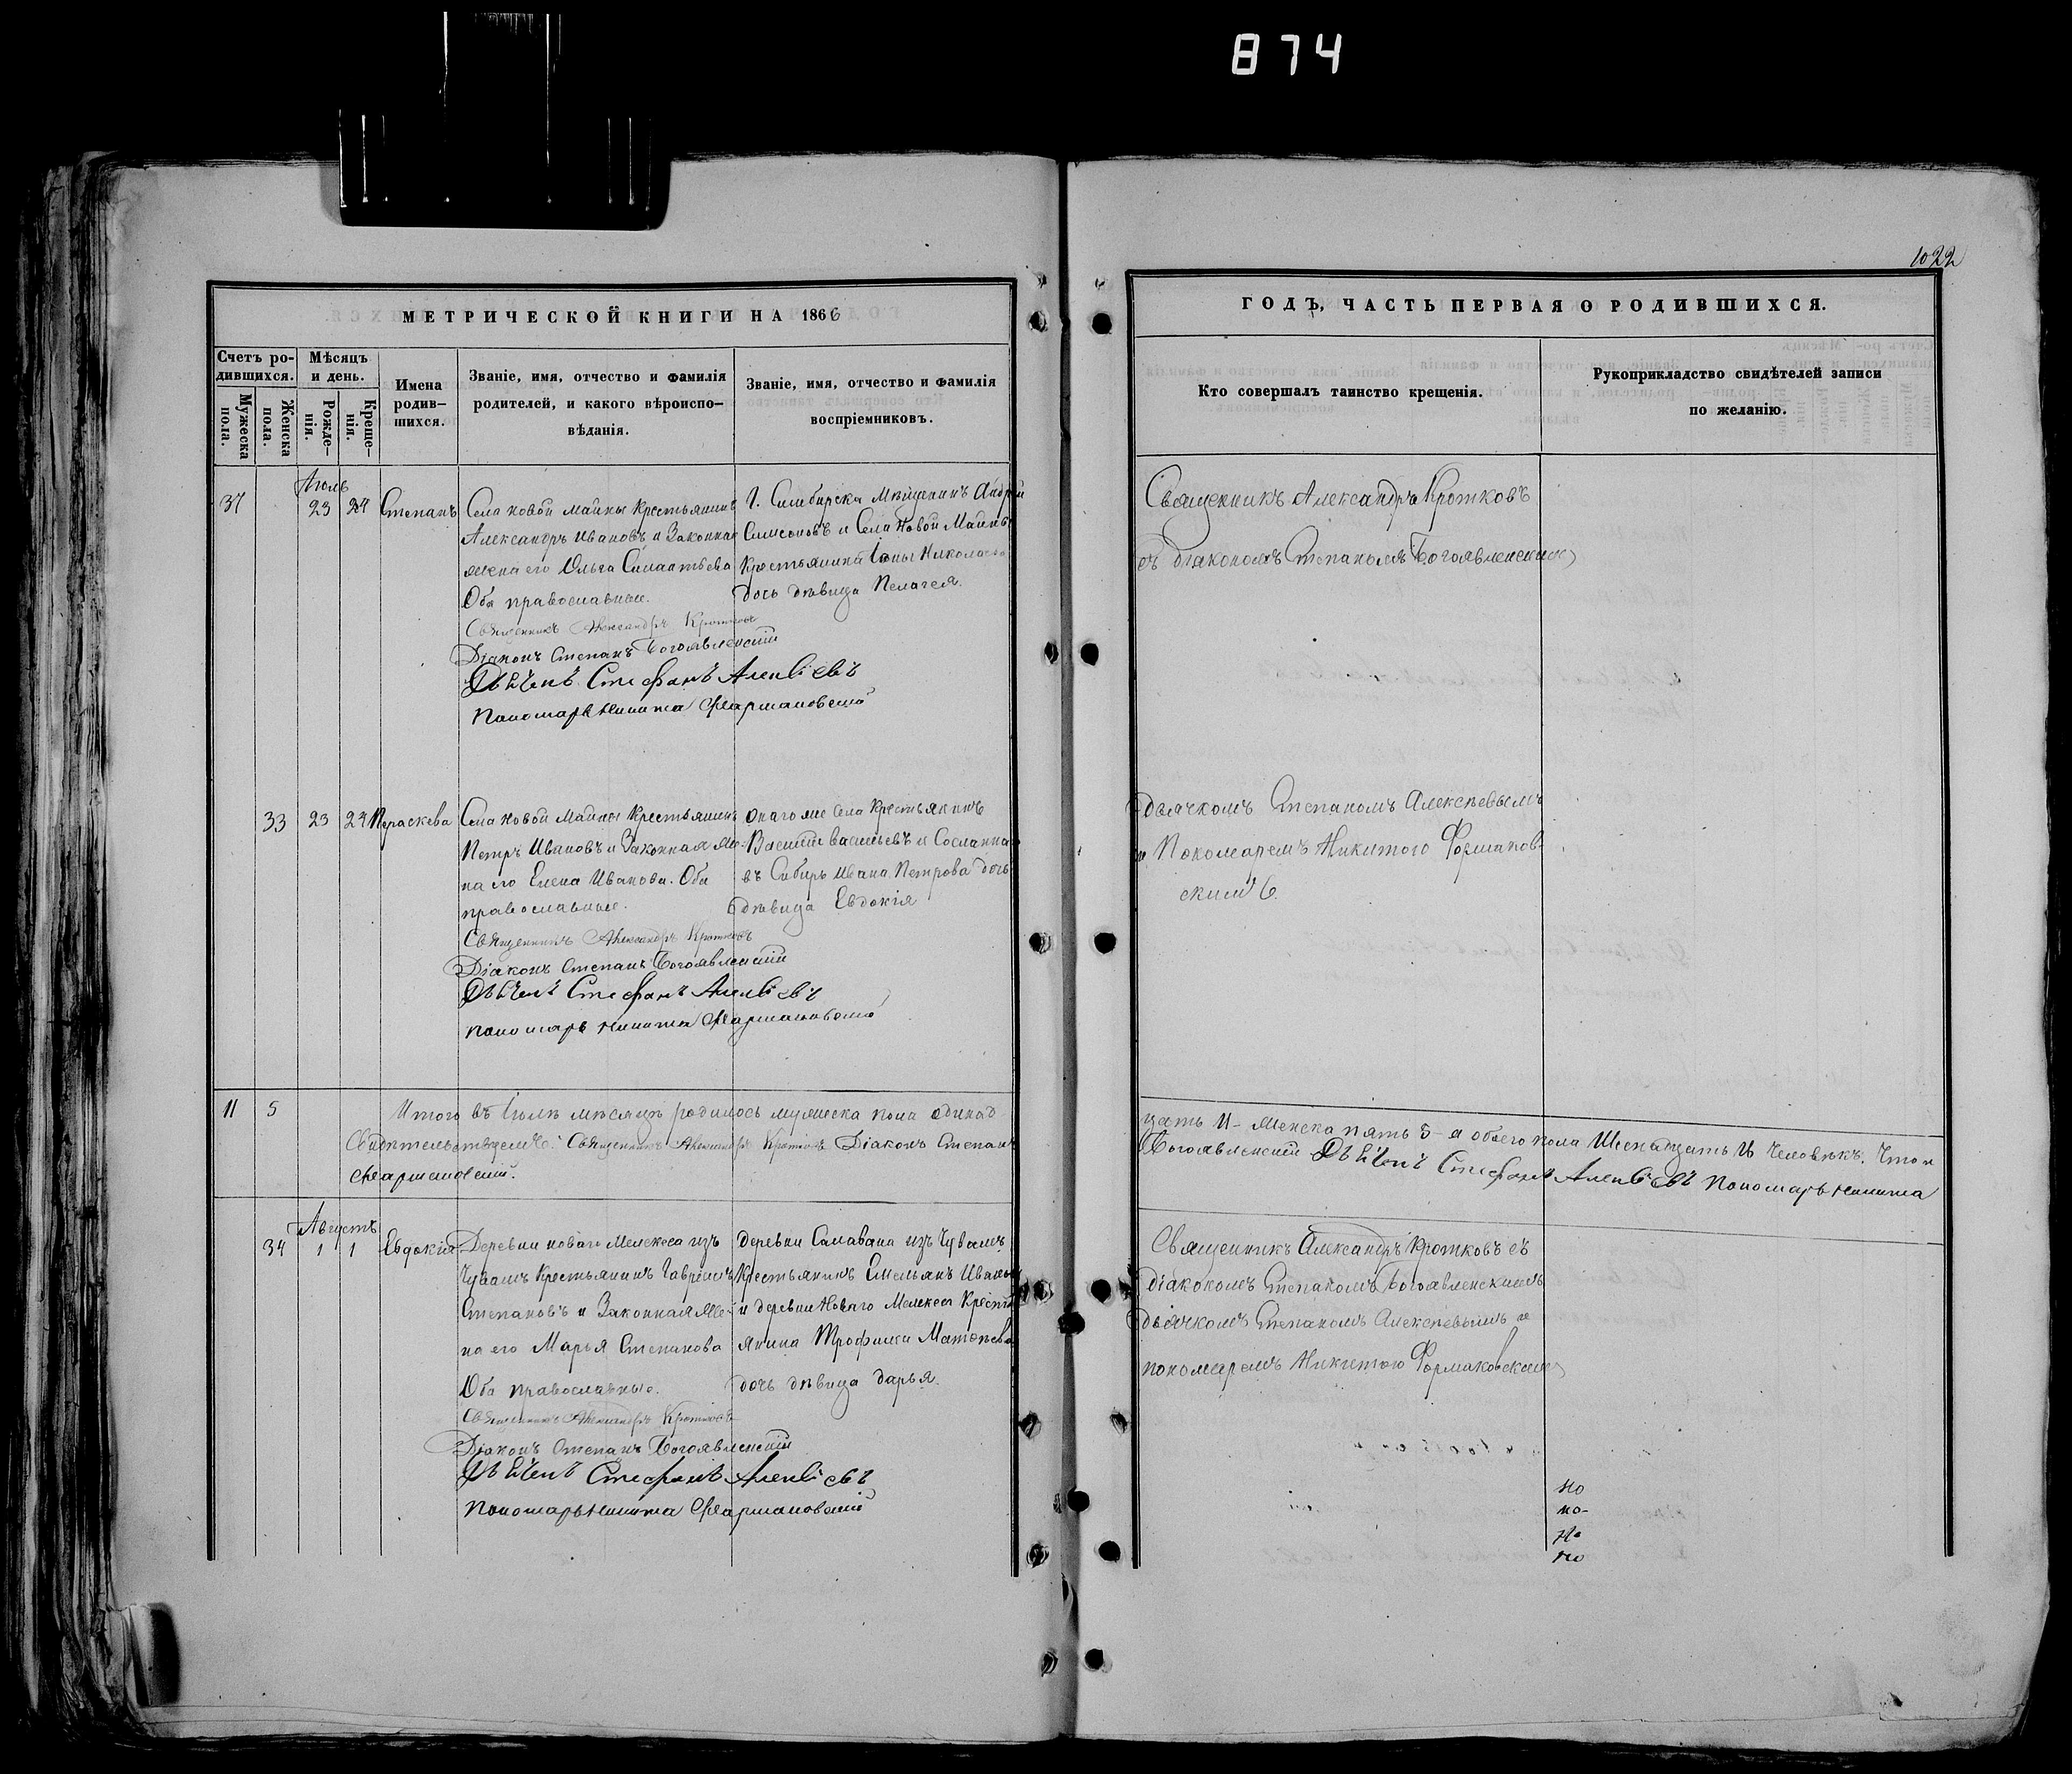 874
1022
МЕТРИЧЕСКОЙ КНИГИ НА 1866
ГОДЪ, ЧАСТЬ ПЕРВАЯ О РОДИВШИХСЯ.
Счетъ ро-
дившихся.
Мужеска
пола.
Женска
пола.
Мѣсяцъ
и день.
Рожде-
нія.
Креще-
нія.
Имена
родив-
шихся.
Званіе, имя, отчество и фамилія
родителей, и какого вѣроиспо-
вѣданія.
Званіе, имя, отчество и фамилія
воспріемниковъ.
Кто совершалъ таинство крещенія.
Рукоприкладство свидѣтелей записи
по желанію.
Іюль
37 23 24 Степанъ
Села Новой Майны Крестьянинъ
Александръ Ивановъ и Законная
жена его Ольга
Оба православные.
Священникъ Александръ Кротковъ
Діаконъ Степанъ Богоявленскій
Дьячекъ Стефанъ Алексіевъ
Пономарь Никита Фармаковскій
Г. Симбирска Мѣщанинъ Андрей
Симсоновъ и Села Новой Майны
Крестьянина Іоны Николаева
дочь дѣвица Пелагея.
Священникъ Александръ Кротковъ
съ діакономъ Степаномъ Богоявленскимъ
33 23 24 Параскева
Села Новой Майны Крестьянинъ
Петръ Ивановъ и Законная же-
на его Елена Иванова. Оба
православные.
Священникъ Александръ Кротковъ
Діаконъ Степанъ Богоявленскій
Дьячекъ Стефанъ Алексіевъ
Пономарь Никита Фармаковскій
Онаго же села Крестьянинъ
Василій Васильевъ и Сосланна
въ Сибирь Ивана Петрова дочь
дѣвица Евдокія
дьячкомъ Степаномъ Алексѣевымъ
и Пономаремъ Никитою Формаков-
скимъ.
11 5
Итого въ Іюлѣ мѣсяцѣ родилось мужеска пола одинад
цать 11 женска пять 5 а обоего пола Шеснадцать 16 человѣкъ. Что и
Свидѣтельствуемъ: Священникъ Александръ Кротковъ Діаконъ Степанъ
Богоявленскій Дьячекъ Стефанъ Алексіевъ Пономарь Никита
Фармаковскій.
Августъ
34 1 1 Евдокія
Деревни новаго Мелекеса изъ
Чувашъ Крестьянинъ Гавріилъ
Степановъ и Законная же-
на его Марья Степанова
Оба православные.
Священникъ Александръ Кротковъ
Діаконъ Степанъ Богоявленскій
Дьячекъ Стефанъ Алексіевъ
Пономарь Никита Фармаковскій
деревни Салавана изъ Чувашъ
Крестьянинъ Емельянъ Ивановъ
и деревни Новаго Мелекеса Кресть
янина Трофима Матвѣева
дочь дѣвица Дарья.
Священникъ Александръ Кротковъ съ
діакономъ Степаномъ Богоявленскимъ
дьячкомъ Степаномъ Алексѣевымъ и
пономаремъ Никитою Формаковскимъ